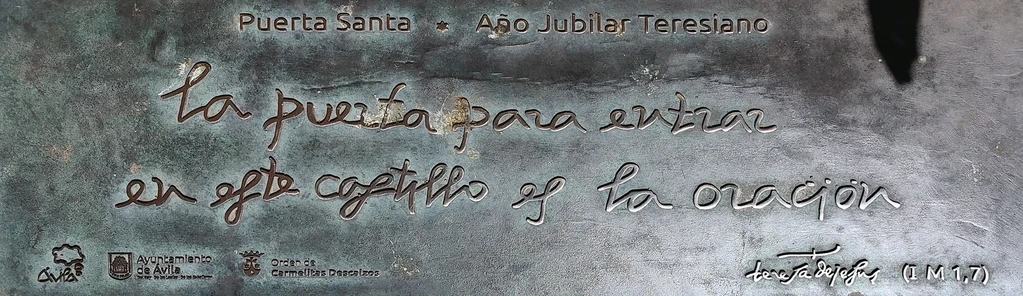 Puerta Santa * Año Jubilar Teresiano
la puerta para entrar
en este castillo es la oración
Ávila
Ayuntamiento
de Ávila
Orden de
Carmelitas Descalzos
teresa de jesus (I M 1,7)